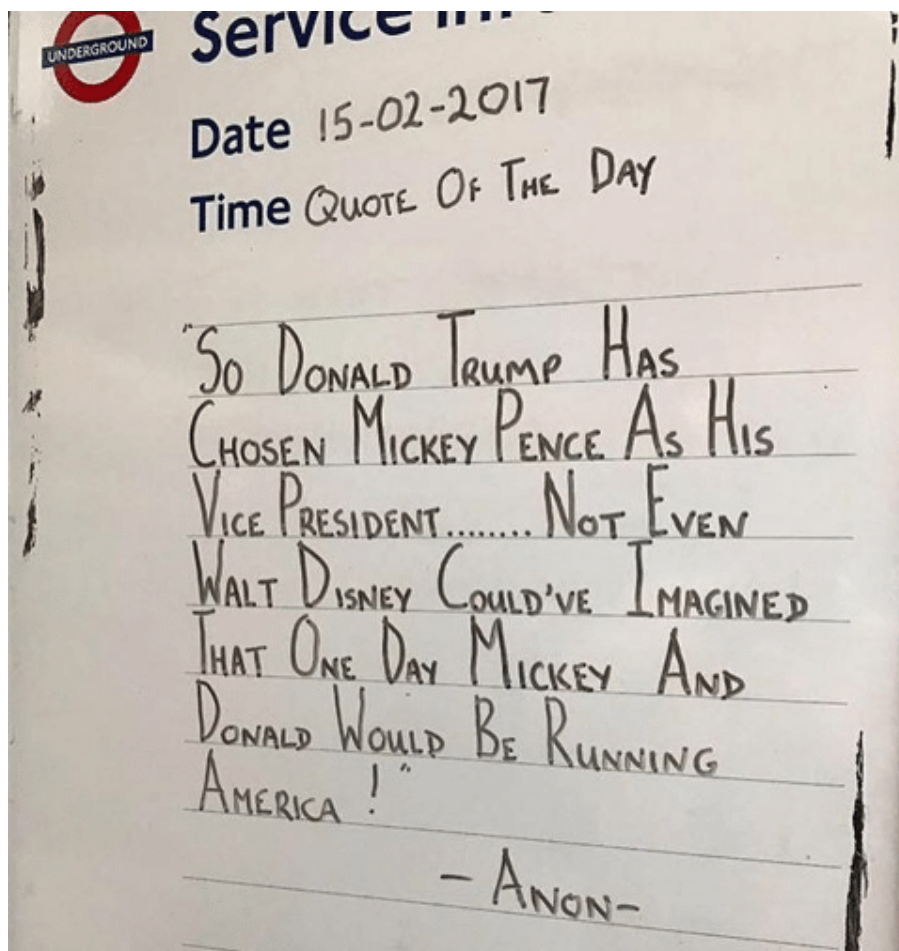 UNDERGROUND
Service
Date 15-02-2017
Time QUOTE OF THE DAY
"SO DONALD TRUMP HAS
CHOSEN MICKEY PENCE AS HIS
VICE PRESIDENT........ NOT EVEN
WALT DISNEY COULD'VE IMAGINED
THAT ONE DAY MICKEY AND
DONALD WOULD BE RUNNING
AMERICA !"
- ANON-